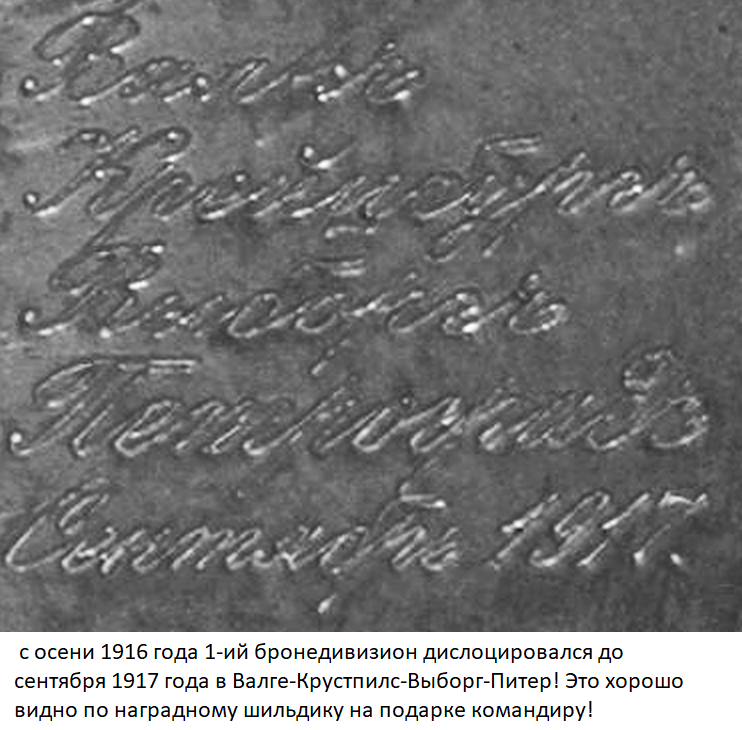 Валкъ
Крейцбургъ
Выборгъ
Петроградъ
Сентябрь 1917.
с осени 1916 года 1-ий бронедивизион дислоцировался до
сентября 1917 года в Валге-Крустпилс-Выборг-Питер! Это хорошо
видно по наградному шильдику на подарке командиру!